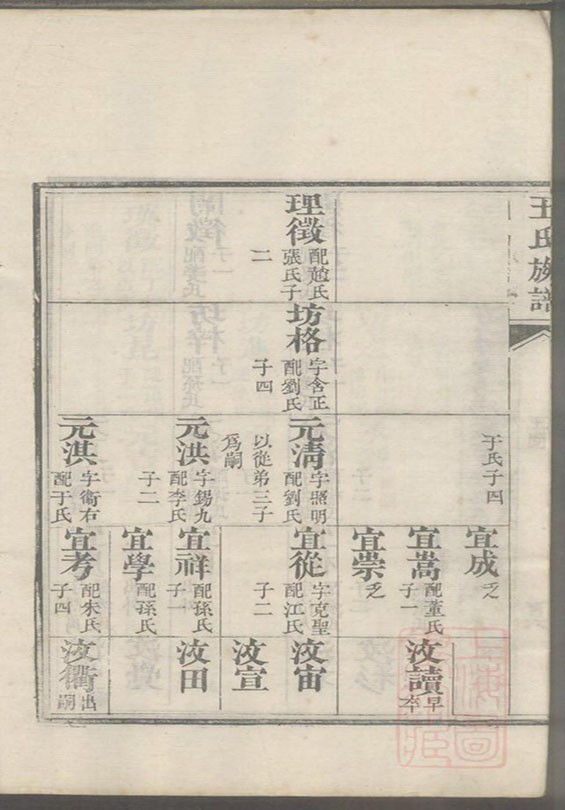 王氏族譜
理徵
配趙氏
張氏子
二
坊格
字含正
配劉氏
子四
于氏子四
元清
字照明
配劉氏
以從弟三子
爲嗣
元洪
字錫九
配李氏
子二
元淇
字衛右
配于氏
宜成
乏
宜嵩
配董氏
子一
宜崇
乏
宜從
字克聖
配江氏
子二
宜祥
配孫氏
子一
宜學
配孫氏
宜考
配朱氏
子四
汝讀
早
卒
汝宙
汝宣
汝田
汝衢
出
嗣